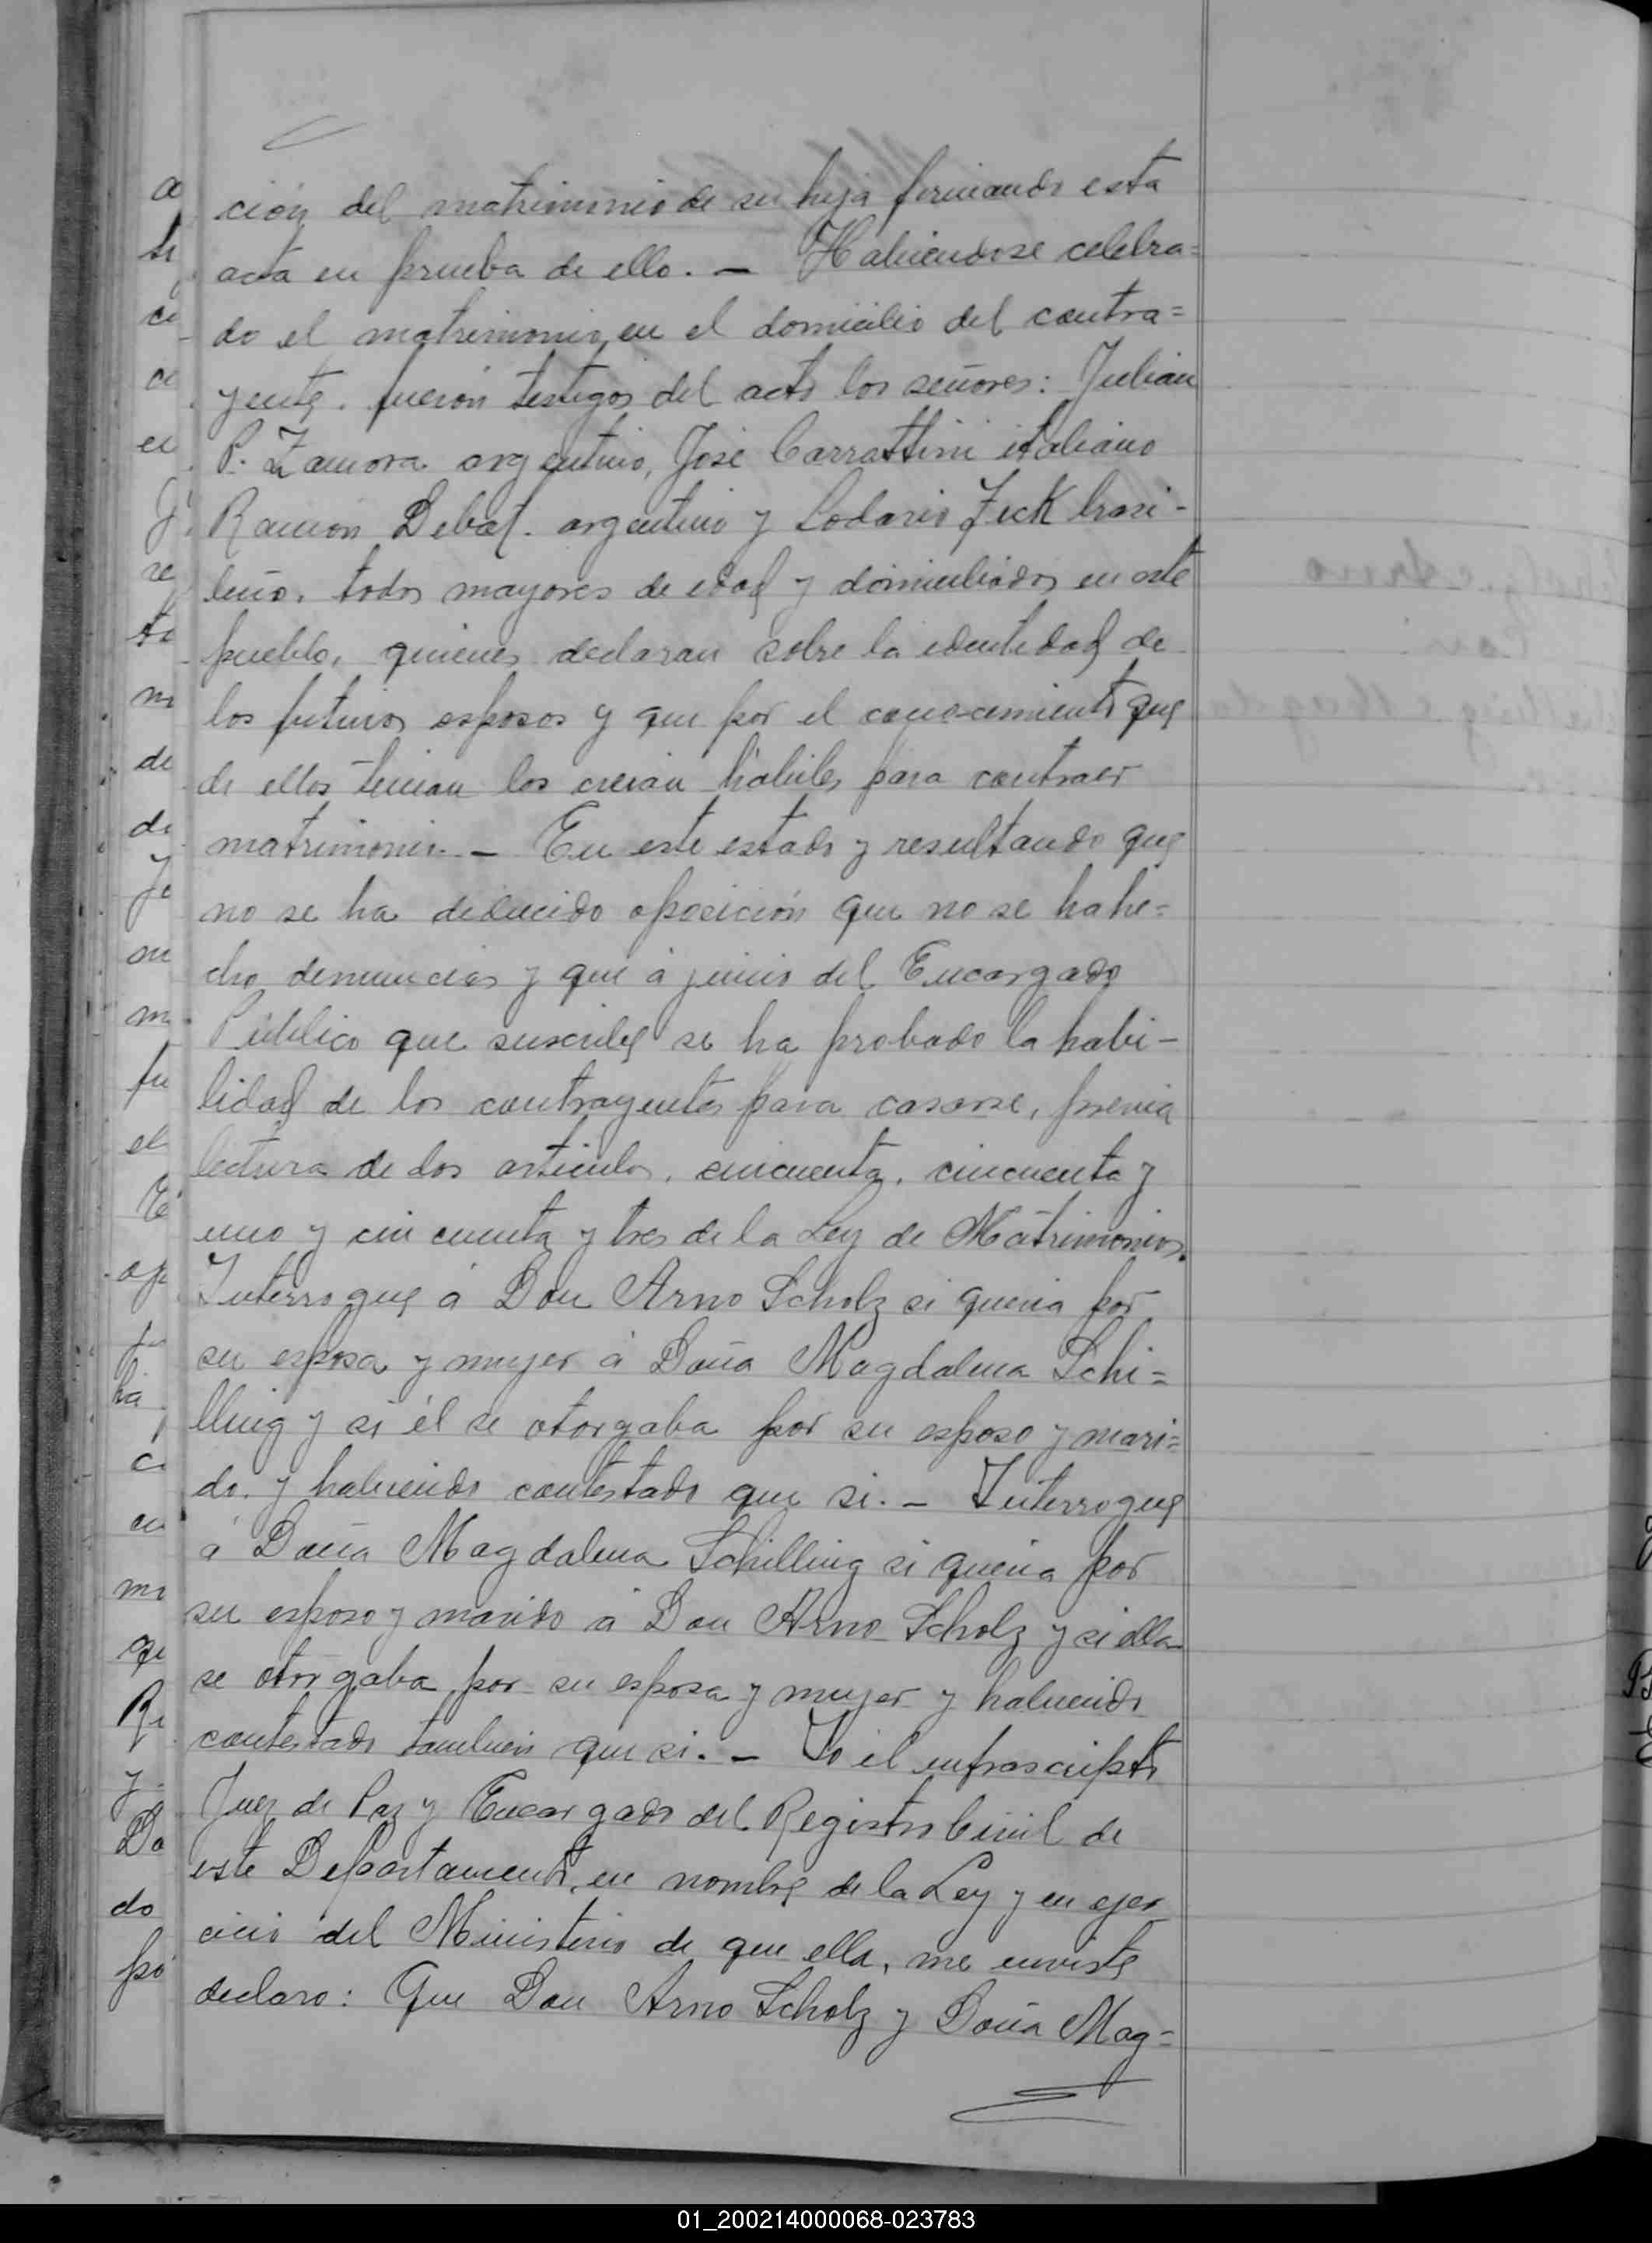 ción del matrimonio de su hija firmando esta
acta en prueba de ello. — Habiendose celebra=
do el matrimonio en el domicilio del contra=
yente. fueron testigos del acto los señores: Julian
P. Zamora argentino, José Carrattini italiano
Ramón Debat. argentino y Lodario Feck brasi-
leño. todos mayores de edad y domiciliados en este
pueblo, quienes declaran sobre la identidad de
los futuros esposos y que por el conocimiento que
de ellos tenian los creian hábiles para contraer
matrimonio. — En este estado y resultando que
no se ha deducido oposición que no se ha he=
cho denuncias y que á juicio del Encargado
Público que suscribe se ha probado la habi-
lidad de los contrayentes para casarse, previa
lectura de los articulos, cincuenta, cincuenta y
uno y cincuenta y tres de la Ley de Matrimonios.
Interrogue á Don Arno Scholz si queria por
su esposa y mujer á Doña Magdalena Schi=
lling y si él se otorgaba por su esposo y mari=
do. y habiendo contestado que si. — Interrogue
á Doña Magdalena Schilling si queria por
su esposo y marido á Don Arno Scholz y si ella
se otorgaba por su esposa y mujer y habiendo
contestado tambien que si. — Yo el infrascripto
Juez de Paz y Encargado del Registro Civil de
este Departamento, en nombre de la Ley y en ejer
cicio del Ministerio de que ella, me enviste
declaro: Que Don Arno Scholz y Doña Mag=
01_200214000068-023783